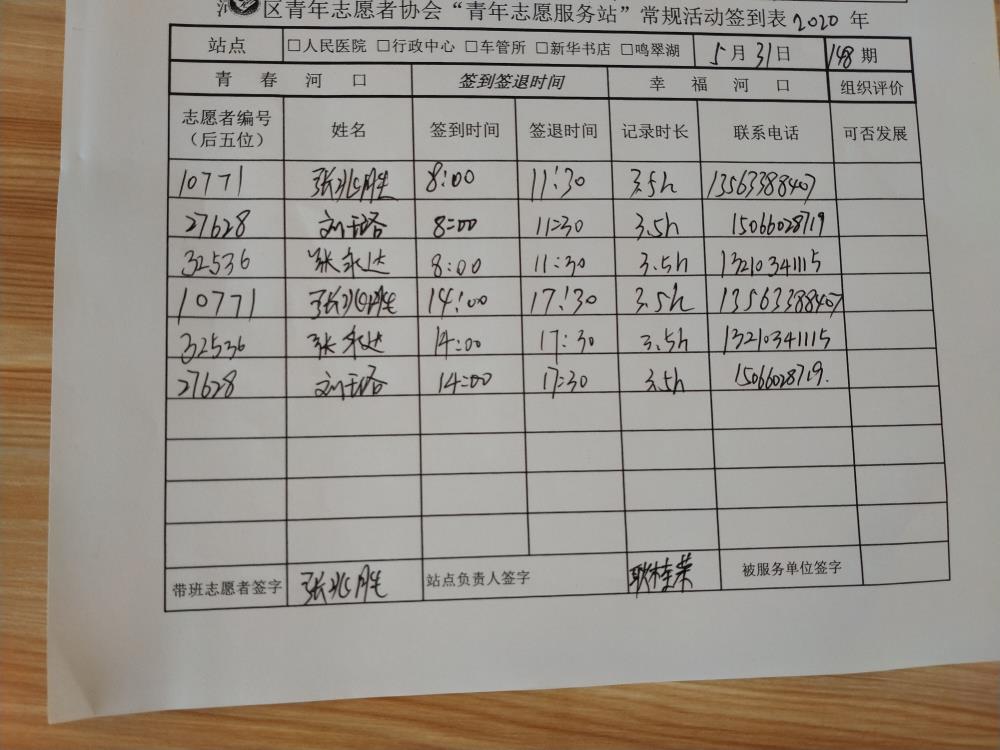 区青年志愿者协会“青年志愿服务站”常规活动签到表2020 年
站点 □人民医院 □行政中心 □车管所 □新华书店 □鸣翠湖 5月31日 148期
青 春 河 口 签到签退时间 幸 福 河 口 组织评价
志愿者编号（后五位） 姓名 签到时间 签退时间 记录时长 联系电话 可否发展
10771 张兆胜 8:00 11:30 3.5h 13563388407
27628 8:00 11:30 3.5h 15066028719
32536 张永达 8:00 11:30 3.5h 13210341115
10771 张兆胜 14:00 17:30 3.5h 13563388407
32536 张永达 14:00 17:30 3.5h 13210341115
27628 14:00 17:30 3.5h 15066028719.
带班志愿者签字 张兆胜 站点负责人签字 耿桂荣 被服务单位签字